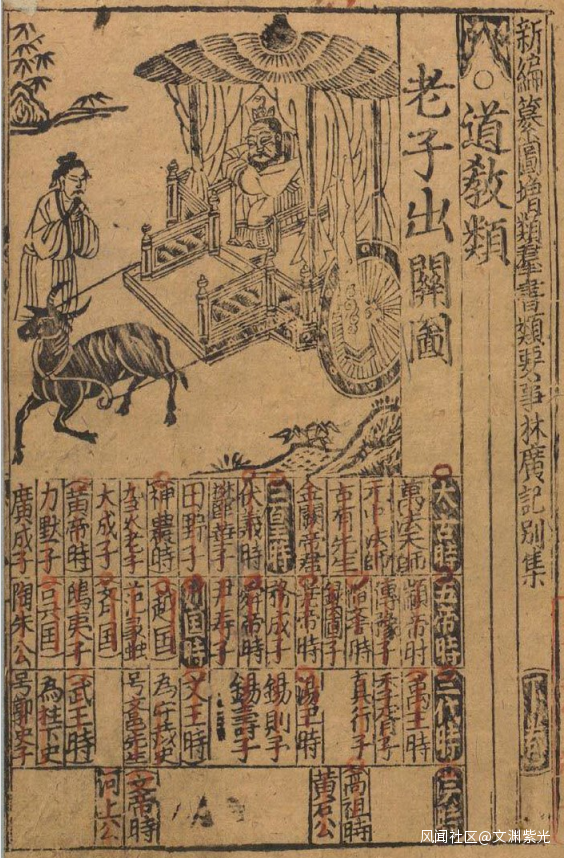 新編纂圖增類羣書類要事林廣記別集
○道教類
老子出關圖
太古時
萬法天師
玄中法師
古有先生
金闕帝君
三皇時
伏羲時
鬱華子
田野子
神農時
大成子
黃帝時
力默子
廣成子
五帝時
顓帝時
傳豫子
帝嚳時
錄圖子
堯帝時
務成子
舜帝時
尹壽子
列国時
越国
范蠡
齊国
鴟夷子
吳国
陶朱公
三代時
禹王時
真行子
湯王時
錫則子
錫壽子
文王時
為守藏史
武王時
為柱下史
号郭叔子
高祖時
黃石公
文帝時
河上公
风闻社区@文渊紫光